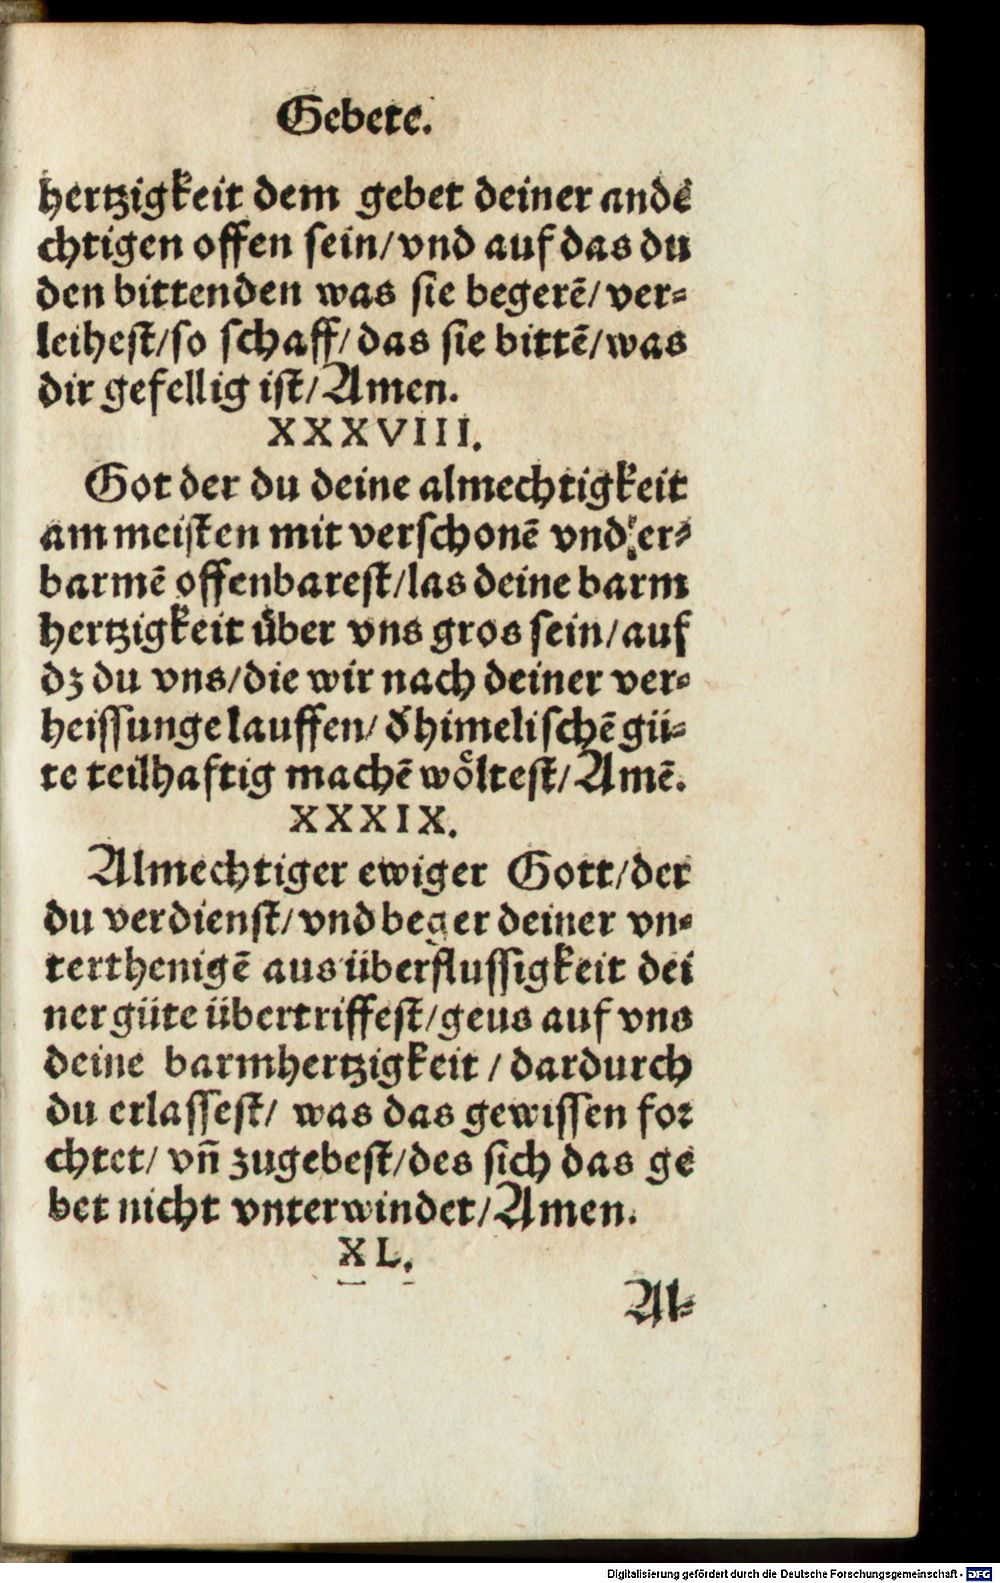 Gebete.
hertzigkeit dem gebet deiner ande
chtigen offen sein/vnd auf das du
den bittenden was sie begerē/ver-
leihest/so schaff/das sie bittē/was
dir gefellig ist/Amen.
XXXVIII.
Got der du deine almechtigkeit
am meisten mit verschonē vnd er-
barmē offenbarest/las deine barm
hertzigkeit über vns gros sein/auf
dz du vns/die wir nach deiner ver-
heissunge lauffen/ď himelischē gü-
te teilhaftig machē wöltest/Amē.
XXXIX.
Almechtiger ewiger Gott/der
du verdienst/vnd beger deiner vn-
terthenigē aus überflussigkeit dei
ner güte übertriffest/geus auf vns
deine barmhertzigkeit / dardurch
du erlassest/ was das gewissen for
chtet/ vn̄ zugebest/des sich das ge
bet nicht vnterwindet/Amen.
XL.
Al-
Digitalisierung gefördert durch die Deutsche Forschungsgemeinschaft - DFG